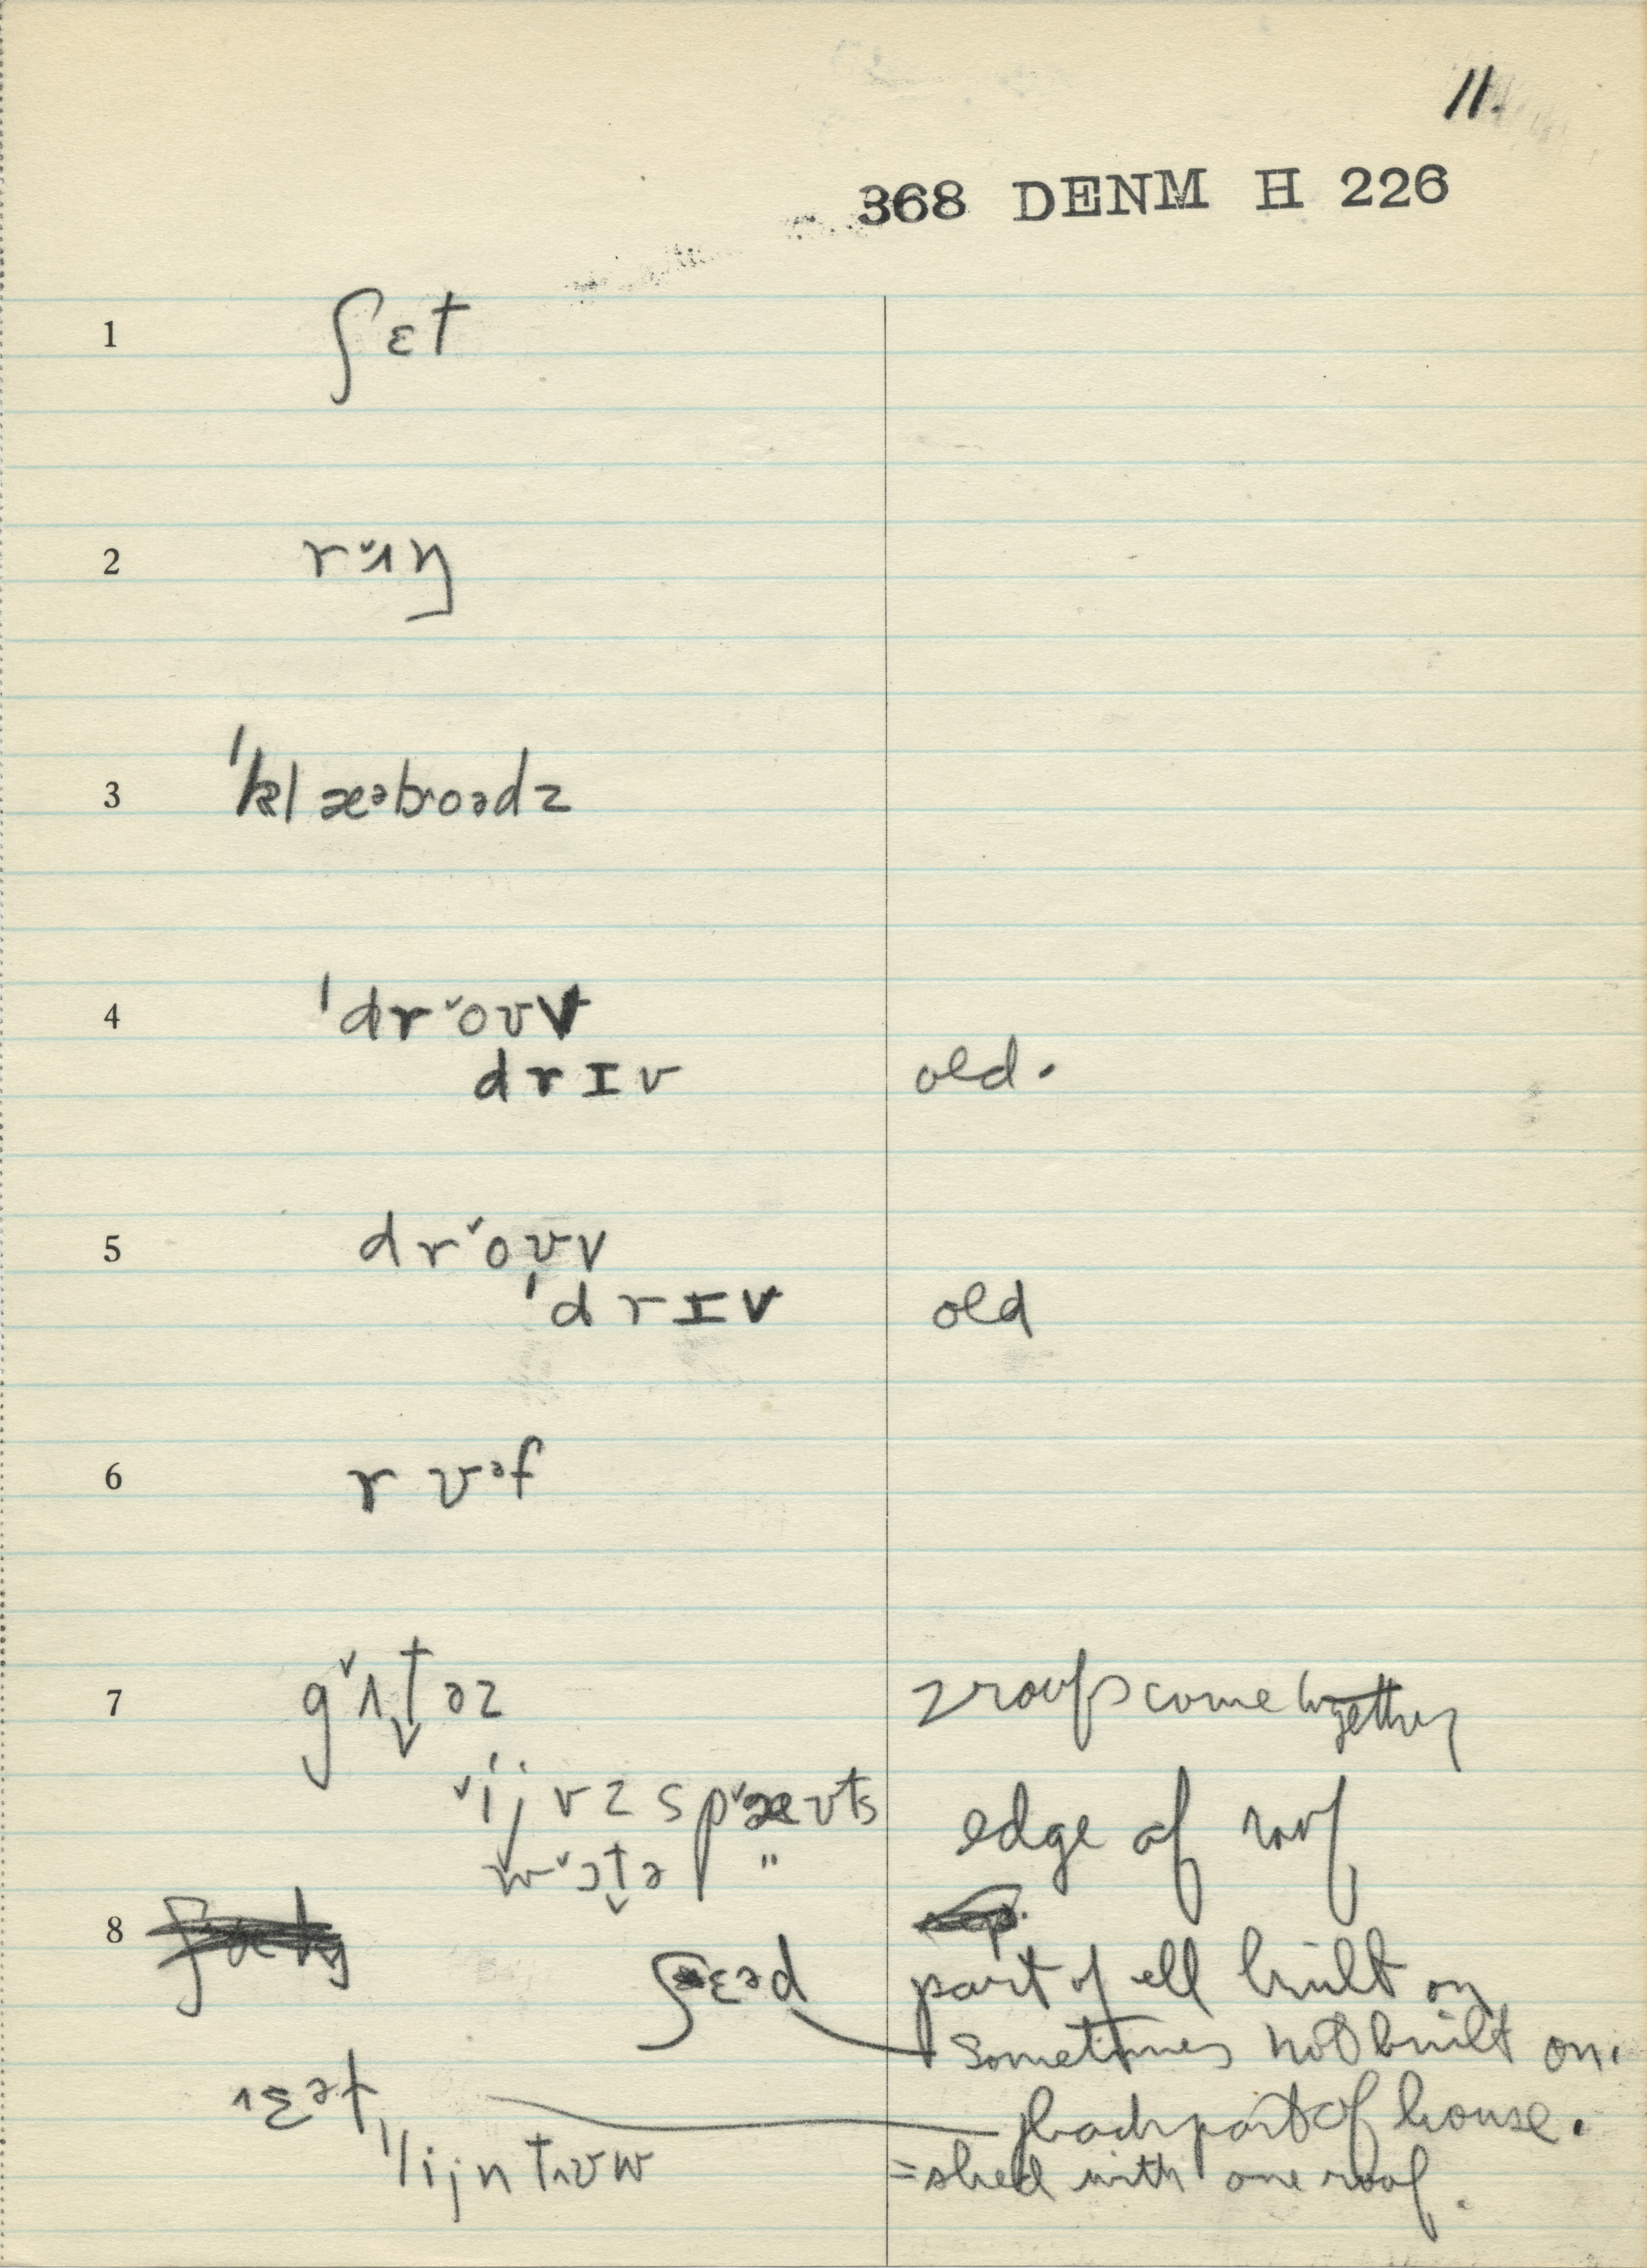 11.
368 DENM H 226
1 ʃɛt
2 r˅ʌŋ
3 ˈklæᵊbroədz
4 ˈdr˅oʊv
drɪv old.
5 dr˅oʊv
ˈdrɪv old
6 rʊᵊf
7 g˅ʌt̬əz 2 roofs come together
˅ˈijvz sp˅æʊts edge of roof
w˅ɔt̬ə "
8
ʃɛəd part of ell built on
sometimes not built on.
ˈɛət back part of house.
ˈlijn tʊw =shed with one roof.